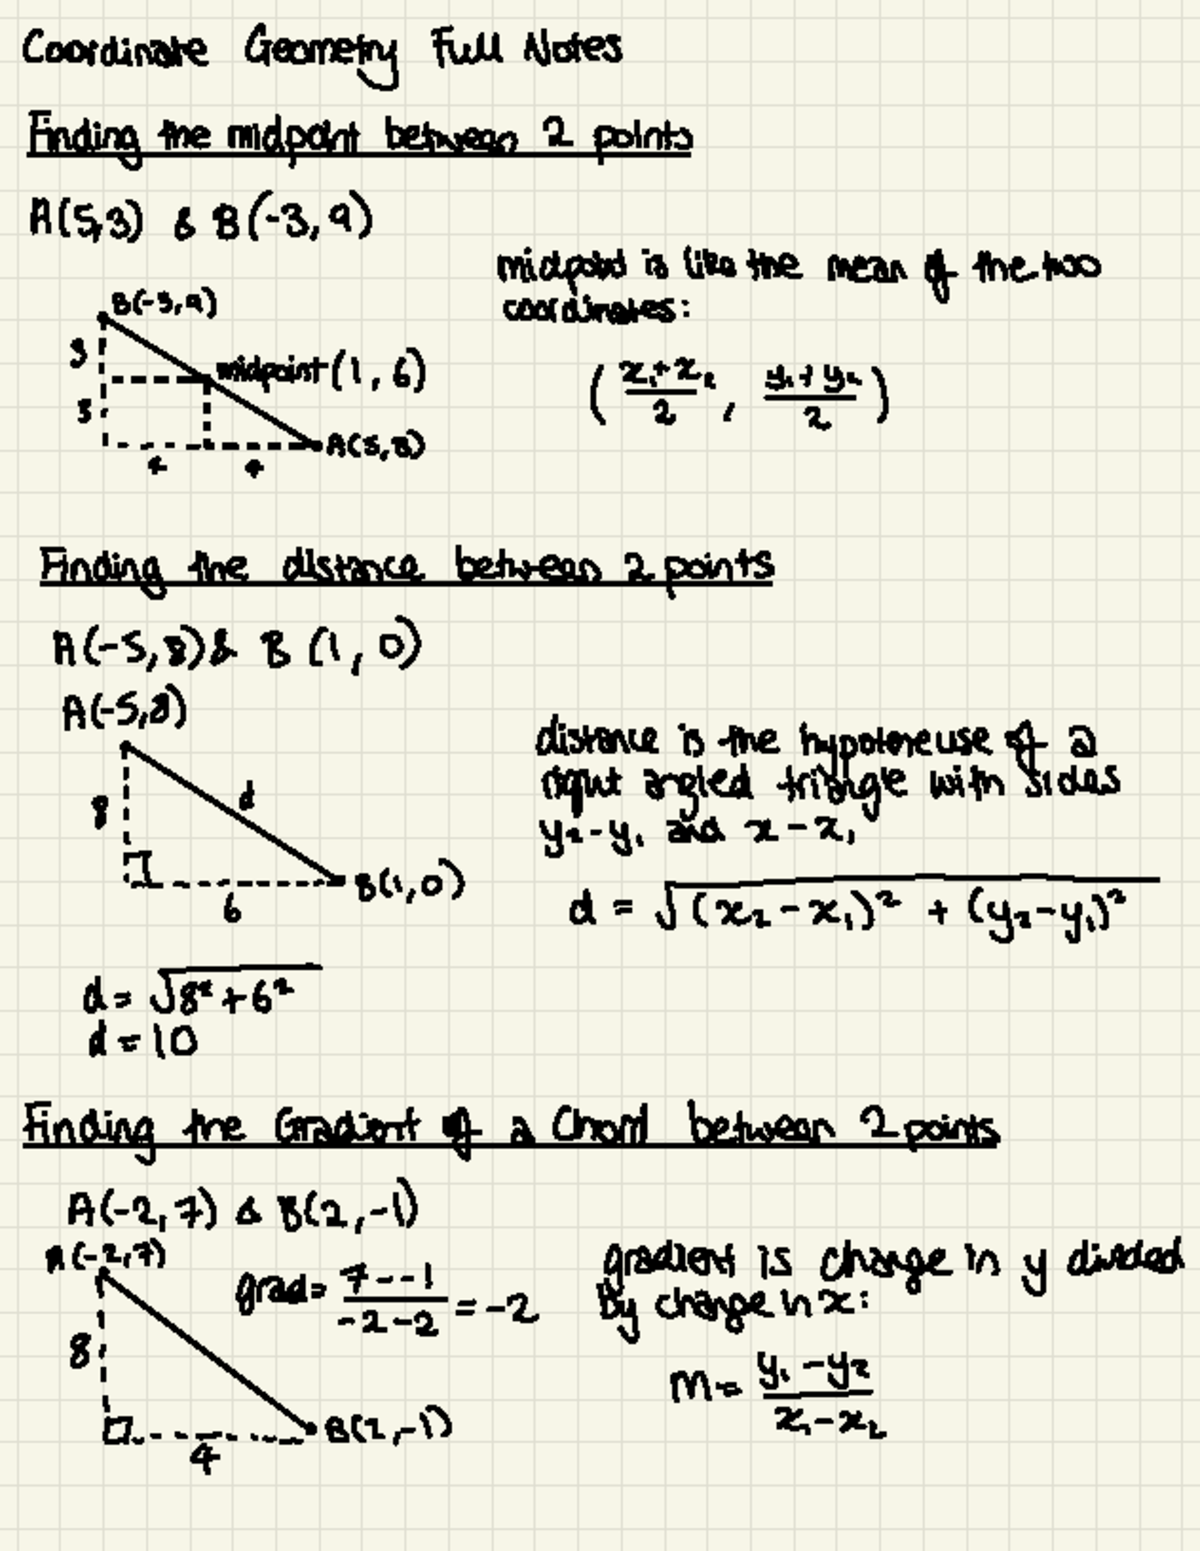 Coordinate Geometry Full Notes
Finding the midpoint between 2 points
A(5,3) & B(-3, 9)
midpoint is like the mean of the two
coordinates:
B(-3,9)
3
midpoint (1, 6)
( x₁+x₂ / 2 , y₁+y₂ / 2 )
3
A(5,3)
4 4
Finding the distance between 2 points
A(-5,8) & B (1, 0)
A(-5,8)
distance is the hypotenuse of a
right angled triangle with sides
y₂-y₁ and x-x₁
8
d
B(1,0)
6
d = √(x₂-x₁)² + (y₂-y₁)²
d= √8²+6²
d=10
Finding the Gradient of a Chord between 2 points
A(-2,7) & B(2,-1)
A(-2,7)
grad= 7--1 / -2-2 = -2
gradient is change in y divided
by change in x:
8
m= y₁-y₂ / x₁-x₂
B(2,-1)
4